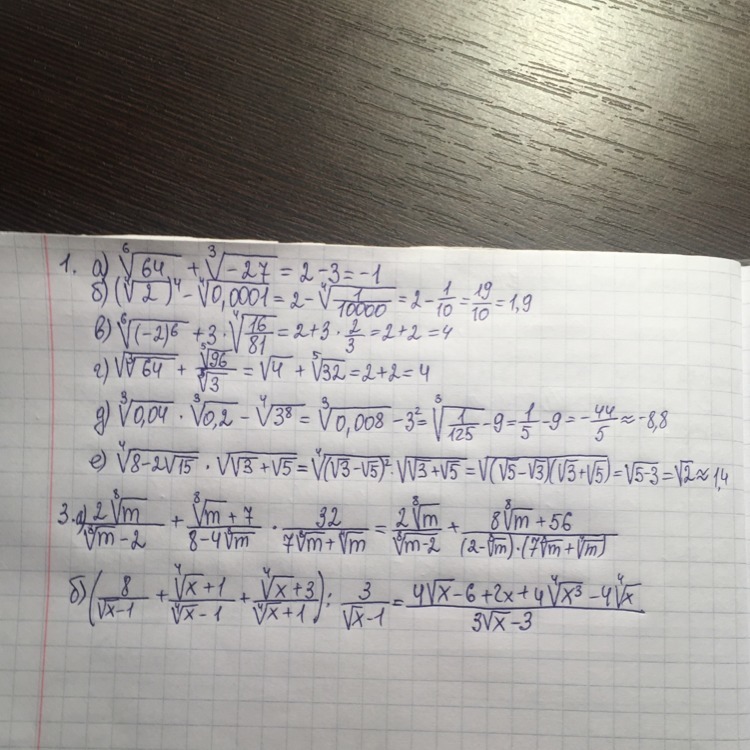 1. а) ⁶√64 + ³√-27 = 2 - 3 = -1
б) (⁴√2)⁴ - ⁴√0,0001 = 2 - ⁴√(1/10000) = 2 - 1/10 = 19/10 = 1,9
в) ⁶√(-2)⁶ + 3 · ⁴√(16/81) = 2 + 3 · 2/3 = 2 + 2 = 4
г) √³√64 + ⁵√96/⁵√3 = √4 + ⁵√32 = 2 + 2 = 4
д) ³√0,04 · ³√0,2 - ⁴√3⁸ = ³√0,008 - 3² = ³√(1/125) - 9 = 1/5 - 9 = -44/5 ≈ -8,8
е) ⁴√(8-2√15) · √(√3+√5) = ⁴√(√3-√5)² · √(√3+√5) = √((√5-√3)(√3+√5)) = √(5-3) = √2 ≈ 1,4
3. а) 2⁸√m/(⁸√m - 2) + (⁸√m + 7)/(8-4⁸√m) · 32/(7⁸√m + ⁴√m) = 2⁸√m/(⁸√m-2) + (8⁸√m + 56)/((2-⁸√m)·(7⁸√m + ⁴√m))
б) (8/(√x-1) + (⁴√x+1)/(⁴√x-1) + (⁴√x+3)/(⁴√x+1)) : 3/(√x-1) = (4√x - 6 + 2x + 4⁴√x³ - 4⁴√x)/(3√x - 3)